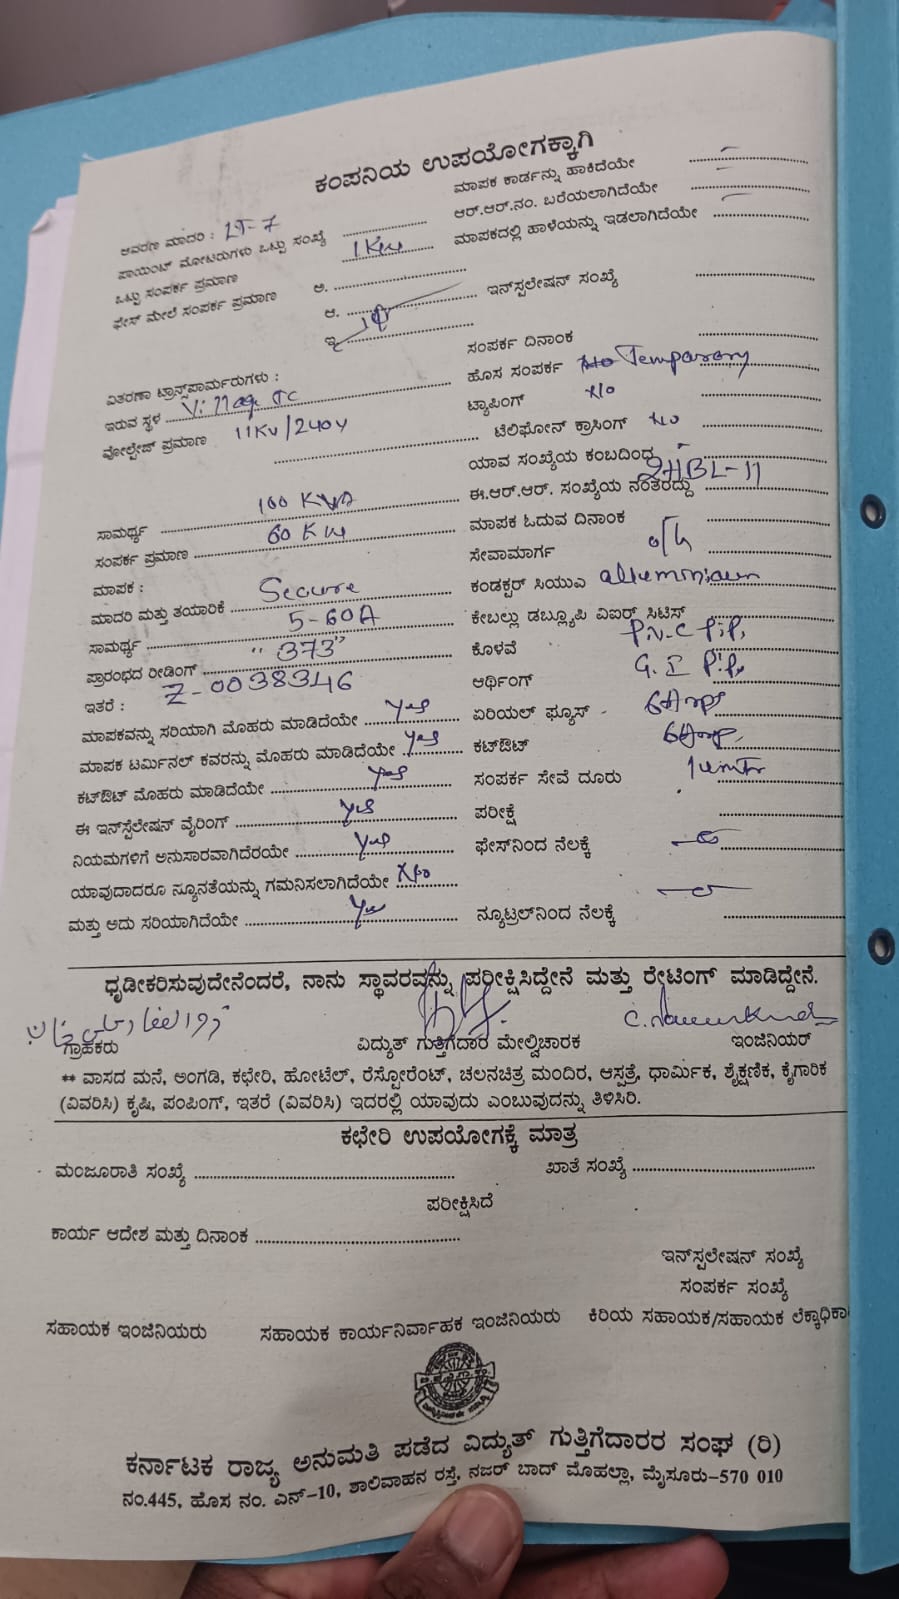 ಕಂಪನಿಯ ಉಪಯೋಗಕ್ಕಾಗಿ
ಆವರಣ ಮಾದರಿ : LT-7
ಮಾಪಕ ಕಾರ್ಡನ್ನು ಹಾಕಿದೆಯೇ
ಪಾಯಿಂಟ್ ಮೋಟರುಗಳು ಒಟ್ಟು ಸಂಖ್ಯೆ
ಆರ್.ಆರ್.ನಂ. ಬರೆಯಲಾಗಿದೆಯೇ
ಒಟ್ಟು ಸಂಪರ್ಕ ಪ್ರಮಾಣ 1Kw
ಮಾಪಕದಲ್ಲಿ ಹಾಳೆಯನ್ನು ಇಡಲಾಗಿದೆಯೇ
ಫೇಸ್ ಮೇಲೆ ಸಂಪರ್ಕ ಪ್ರಮಾಣ ಅ.
ಆ. ಇನ್‌ಸ್ಟಲೇಷನ್ ಸಂಖ್ಯೆ
ಇ.
ಸಂಪರ್ಕ ದಿನಾಂಕ
ವಿತರಣಾ ಟ್ರಾನ್ಸ್‌ಪಾರ್ಮರುಗಳು :
ಹೊಸ ಸಂಪರ್ಕ Temporary
ಇರುವ ಸ್ಥಳ Village TC
ಟ್ಯಾಪಿಂಗ್ No
ವೋಲ್ಟೇಜ್ ಪ್ರಮಾಣ 11Kv/240v
ಟೆಲಿಫೋನ್ ಕ್ರಾಸಿಂಗ್ No
ಯಾವ ಸಂಖ್ಯೆಯ ಕಂಬದಿಂದ
ಸಾಮರ್ಥ್ಯ 100 KVA
ಈ.ಆರ್.ಆರ್. ಸಂಖ್ಯೆಯ ನಂತರದ್ದು 2HBL-11
ಸಂಪರ್ಕ ಪ್ರಮಾಣ 60 Kw
ಮಾಪಕ ಓದುವ ದಿನಾಂಕ
ಮಾಪಕ :
ಸೇವಾಮಾರ್ಗ o/h
ಮಾದರಿ ಮತ್ತು ತಯಾರಿಕೆ Secure
ಕಂಡಕ್ಟರ್ ಸಿಯುಎ alluminium
ಸಾಮರ್ಥ್ಯ 5-60A
ಕೇಬಲ್ಲು ಡಬ್ಲ್ಯೂಪಿ ವಿಐಆರ್ ಸಿಟಿಸ್
ಪ್ರಾರಂಭದ ರೀಡಿಂಗ್ "373"
ಕೊಳವೆ P.V.C Pip,
ಇತರೆ : Z-0038346
ಆರ್ಥಿಂಗ್ G.I Pip,
ಮಾಪಕವನ್ನು ಸರಿಯಾಗಿ ಮೊಹರು ಮಾಡಿದೆಯೇ yes
ಏರಿಯಲ್ ಫ್ಯೂಸ್
ಮಾಪಕ ಟರ್ಮಿನಲ್ ಕವರನ್ನು ಮೊಹರು ಮಾಡಿದೆಯೇ yes
ಕಟ್‌ಔಟ್
ಕಟ್‌ಔಟ್ ಮೊಹರು ಮಾಡಿದೆಯೇ yes
ಸಂಪರ್ಕ ಸೇವೆ ದೂರು
ಈ ಇನ್‌ಸ್ಟಲೇಷನ್ ವೈರಿಂಗ್ yes
ಪರೀಕ್ಷೆ
ನಿಯಮಗಳಿಗೆ ಅನುಸಾರವಾಗಿದೆರಯೇ yes
ಫೇಸ್‌ನಿಂದ ನೆಲಕ್ಕೆ
ಯಾವುದಾದರೂ ನ್ಯೂನತೆಯನ್ನು ಗಮನಿಸಲಾಗಿದೆಯೇ No
ಮತ್ತು ಅದು ಸರಿಯಾಗಿದೆಯೇ yes
ನ್ಯೂಟ್ರಲ್‌ನಿಂದ ನೆಲಕ್ಕೆ
ಧೃಡೀಕರಿಸುವುದೇನೆಂದರೆ, ನಾನು ಸ್ಥಾವರವನ್ನು ಪರೀಕ್ಷಿಸಿದ್ದೇನೆ ಮತ್ತು ರೇಟಿಂಗ್ ಮಾಡಿದ್ದೇನೆ.
ಗ್ರಾಹಕರು ವಿದ್ಯುತ್ ಗುತ್ತಿಗೆದಾರ ಮೇಲ್ವಿಚಾರಕ ಇಂಜಿನಿಯರ್
** ವಾಸದ ಮನೆ, ಅಂಗಡಿ, ಕಛೇರಿ, ಹೋಟೆಲ್, ರೆಸ್ಟೋರೆಂಟ್, ಚಲನಚಿತ್ರ ಮಂದಿರ, ಆಸ್ಪತ್ರೆ, ಧಾರ್ಮಿಕ, ಶೈಕ್ಷಣಿಕ, ಕೈಗಾರಿಕ
(ವಿವರಿಸಿ) ಕೃಷಿ, ಪಂಪಿಂಗ್, ಇತರೆ (ವಿವರಿಸಿ) ಇದರಲ್ಲಿ ಯಾವುದು ಎಂಬುವುದನ್ನು ತಿಳಿಸಿರಿ.
ಕಛೇರಿ ಉಪಯೋಗಕ್ಕೆ ಮಾತ್ರ
ಮಂಜೂರಾತಿ ಸಂಖ್ಯೆ ಖಾತೆ ಸಂಖ್ಯೆ
ಪರೀಕ್ಷಿಸಿದೆ
ಕಾರ್ಯ ಆದೇಶ ಮತ್ತು ದಿನಾಂಕ
ಇನ್‌ಸ್ಟಲೇಷನ್ ಸಂಖ್ಯೆ
ಸಂಪರ್ಕ ಸಂಖ್ಯೆ
ಸಹಾಯಕ ಇಂಜಿನಿಯರು ಸಹಾಯಕ ಕಾರ್ಯನಿರ್ವಾಹಕ ಇಂಜಿನಿಯರು ಕಿರಿಯ ಸಹಾಯಕ/ಸಹಾಯಕ ಲೆಕ್ಕಾಧಿಕಾ
ಕರ್ನಾಟಕ ರಾಜ್ಯ ಅನುಮತಿ ಪಡೆದ ವಿದ್ಯುತ್ ಗುತ್ತಿಗೆದಾರರ ಸಂಘ (ರಿ)
ನಂ.445, ಹೊಸ ನಂ. ಎನ್-10, ಶಾಲಿವಾಹನ ರಸ್ತೆ, ನಜರ್ ಬಾದ್ ಮೊಹಲ್ಲಾ, ಮೈಸೂರು-570 010